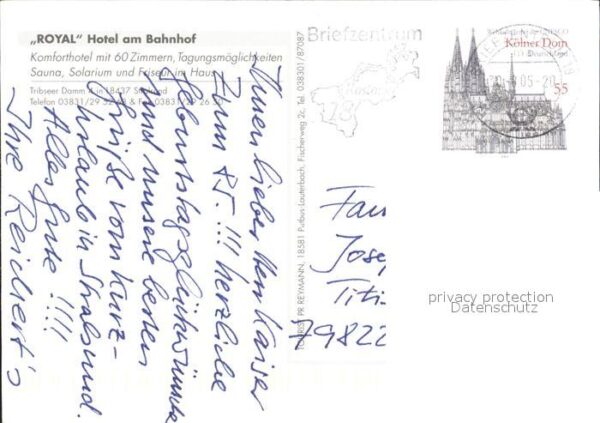 „ROYAL" Hotel am Bahnhof
Komforthotel mit 60 Zimmern, Tagungsmöglichkeiten
Sauna, Solarium und Friseur im Haus
Tribseer Damm 4 in 18437 Stralsund
Telefon 03831/29 52 68 & Fax 03831/29 26 50
Ihnen lieber Herr Kaiser
zum 85. !!! herzliche
Geburtstagsglückwünsche
und unsere besten
Grüße vom Kurz-
urlaub in Stralsund.
Alles Gute !!!!
Ihre Reichert's
TOURIST PR REYMANN, 18581 Putbus Lauterbach, Fischerweg 2c, Tel. 038301/87087
Briefzentrum
18
Kölner Dom
Deutschland
55
05-20
Fam
Jose
Titi
79822
privacy protection
Datenschutz